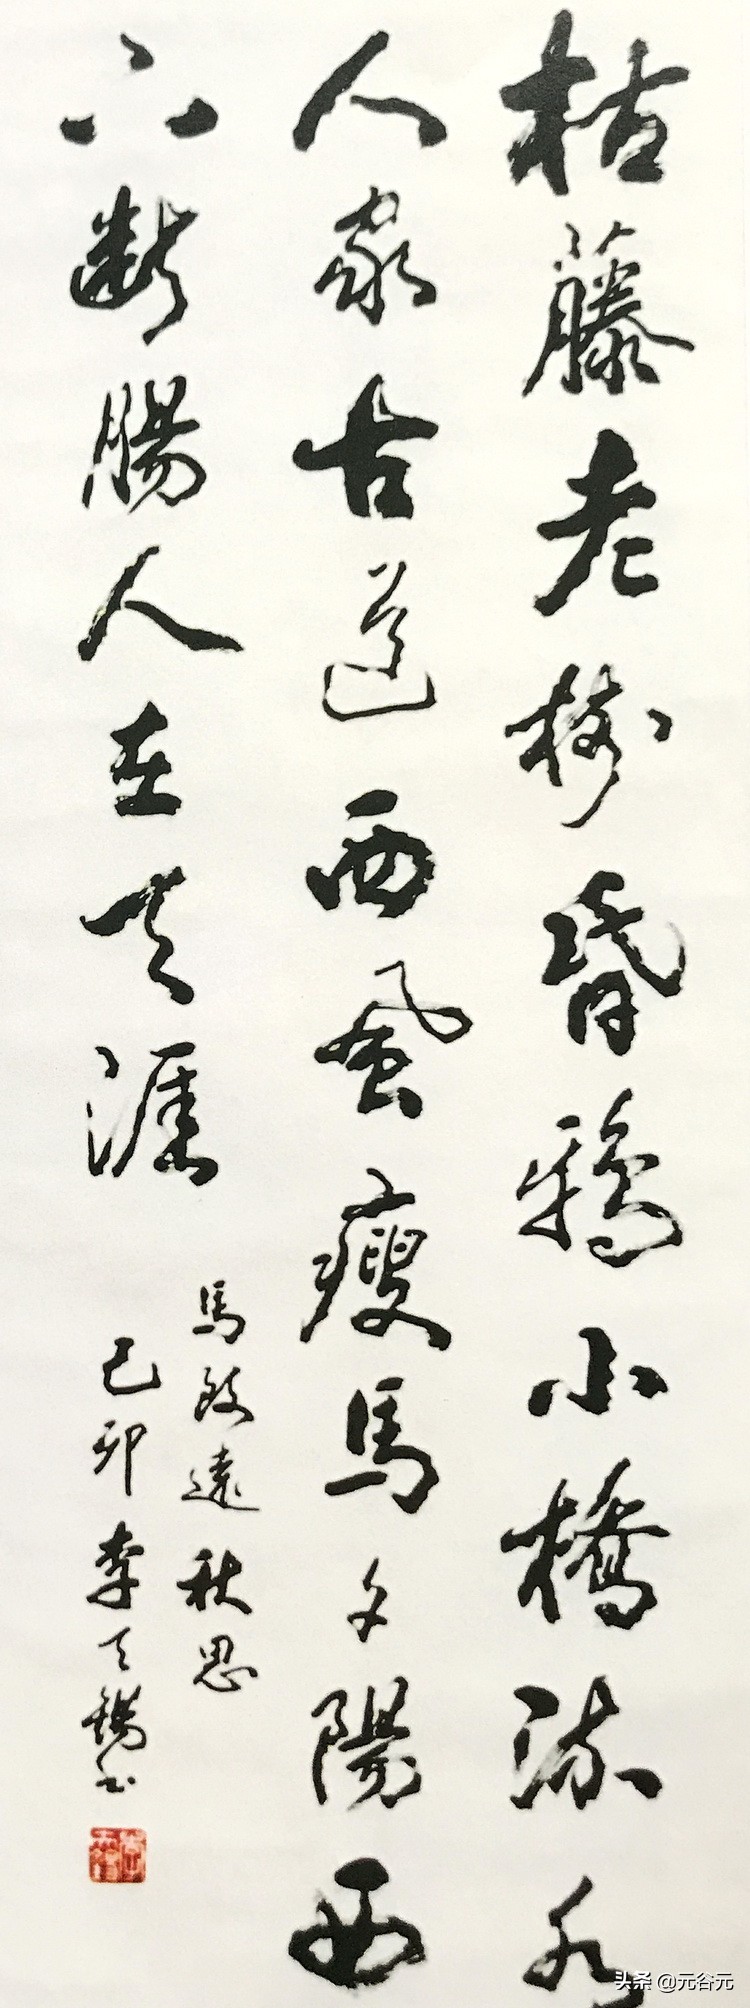 枯藤老樹昏鴉小橋流水
人家古道西風瘦馬夕陽西
下斷腸人在天涯
馬致遠秋思
己卯李天錫书
头条 @元谷元